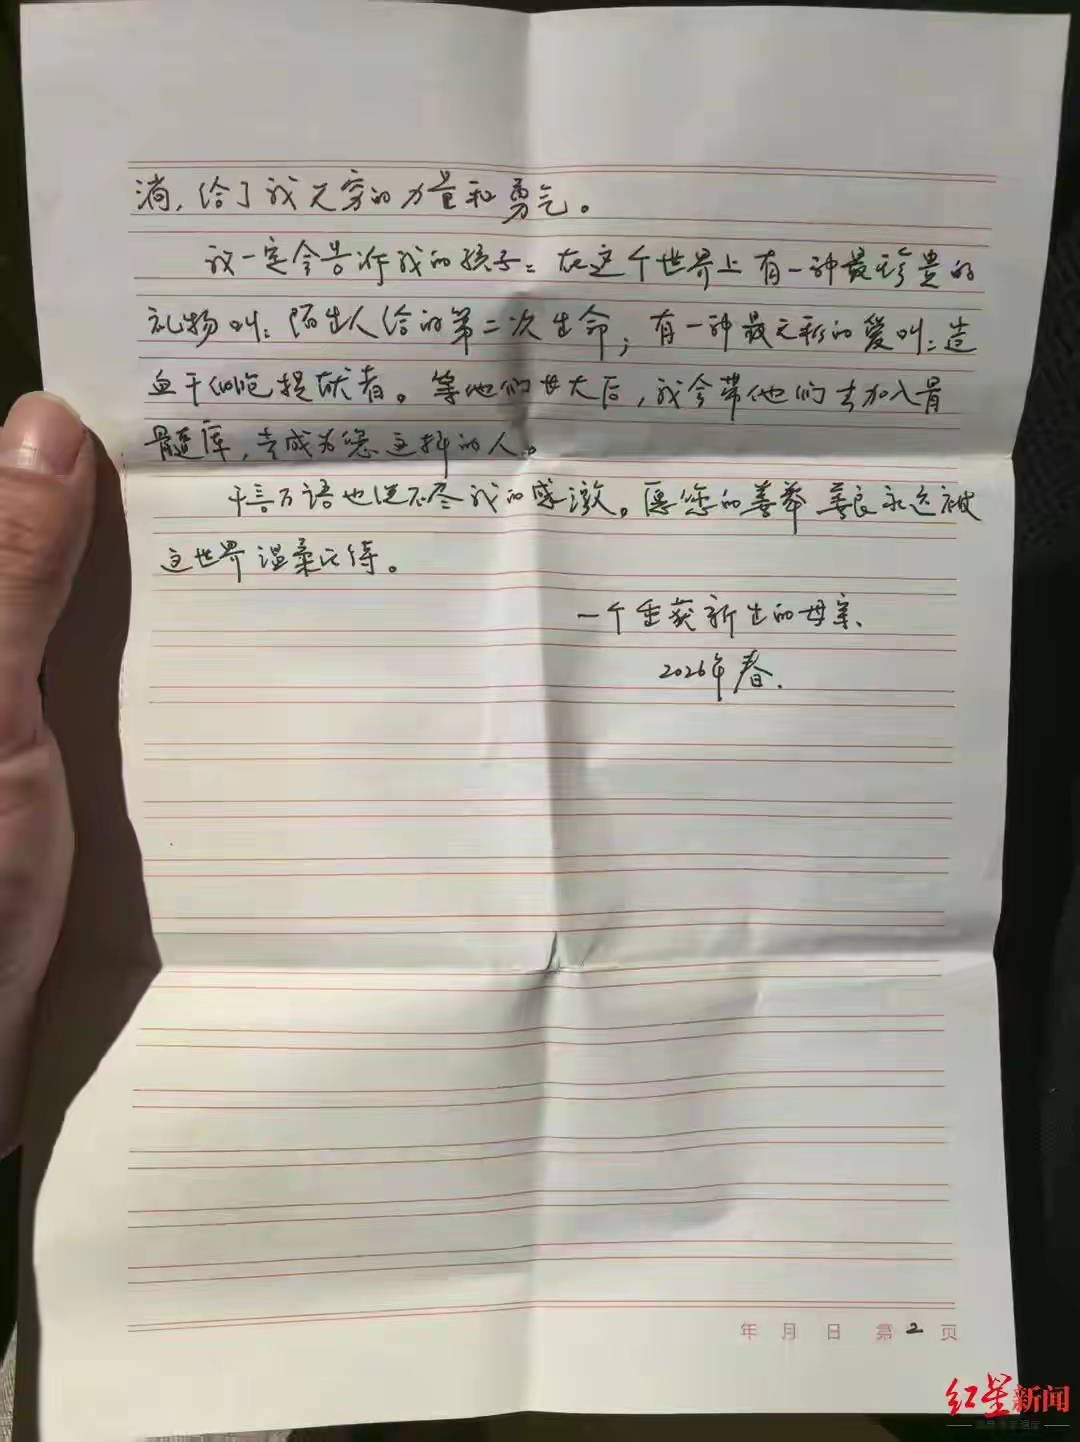 淌，给了我无穷的力量和勇气。
我一定会告诉我的孩子：在这个世界上有一种最珍贵的
礼物叫：陌生人给的第二次生命；有一种最无私的爱叫：造
血干细胞捐献者。等他们长大后，我会带他们去加入骨
髓库，去成为您这样的人。
千言万语也道不尽我的感激。愿您的善举 善良永远被
这世界温柔以待。
一个重获新生的母亲、
2026年春.
年 月 日 第2页
红星新闻